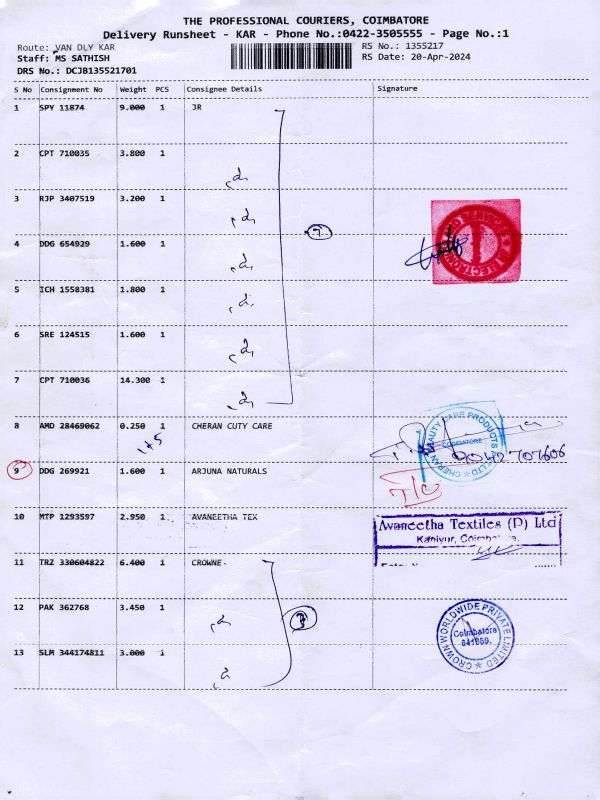 THE PROFESSIONAL COURIERS, COIMBATORE
Delivery Runsheet - KAR - Phone No.:0422-3505555 - Page No.:1
Route: VAN DLY KAR
RS No.: 1355217
Staff: MS SATHISH
RS Date: 20-Apr-2024
DRS No.: DCJB135521701
S No Consignment No Weight PCS Consignee Details Signature
1 SPY 11874 9.000 1 JR
2 CPT 710035 3.800 1
3 RJP 3407519 3.200 1
4 DDG 654929 1.600 1
5 ICH 1558381 1.800 1
6 SRE 124515 1.600 1
7 CPT 710036 14.300 1
8 AMD 28469062 0.250 1 CHERAN CUTY CARE
CHERAN BEAUTY CARE PRODUCTS P LTD
COIMBATORE
9 DDG 269921 1.600 1 ARJUNA NATURALS
10 MTP 1293597 2.950 1 AVANEETHA TEX
Avaneetha Textiles (P) Ltd
Kaniyur, Coimbatore.
11 TRZ 330604822 6.400 1 CROWNE
12 PAK 362768 3.450 1
CROWN WORLDWIDE PRIVATE LIMITED
Coimbatore
641659.
13 SLM 344174811 3.000 1